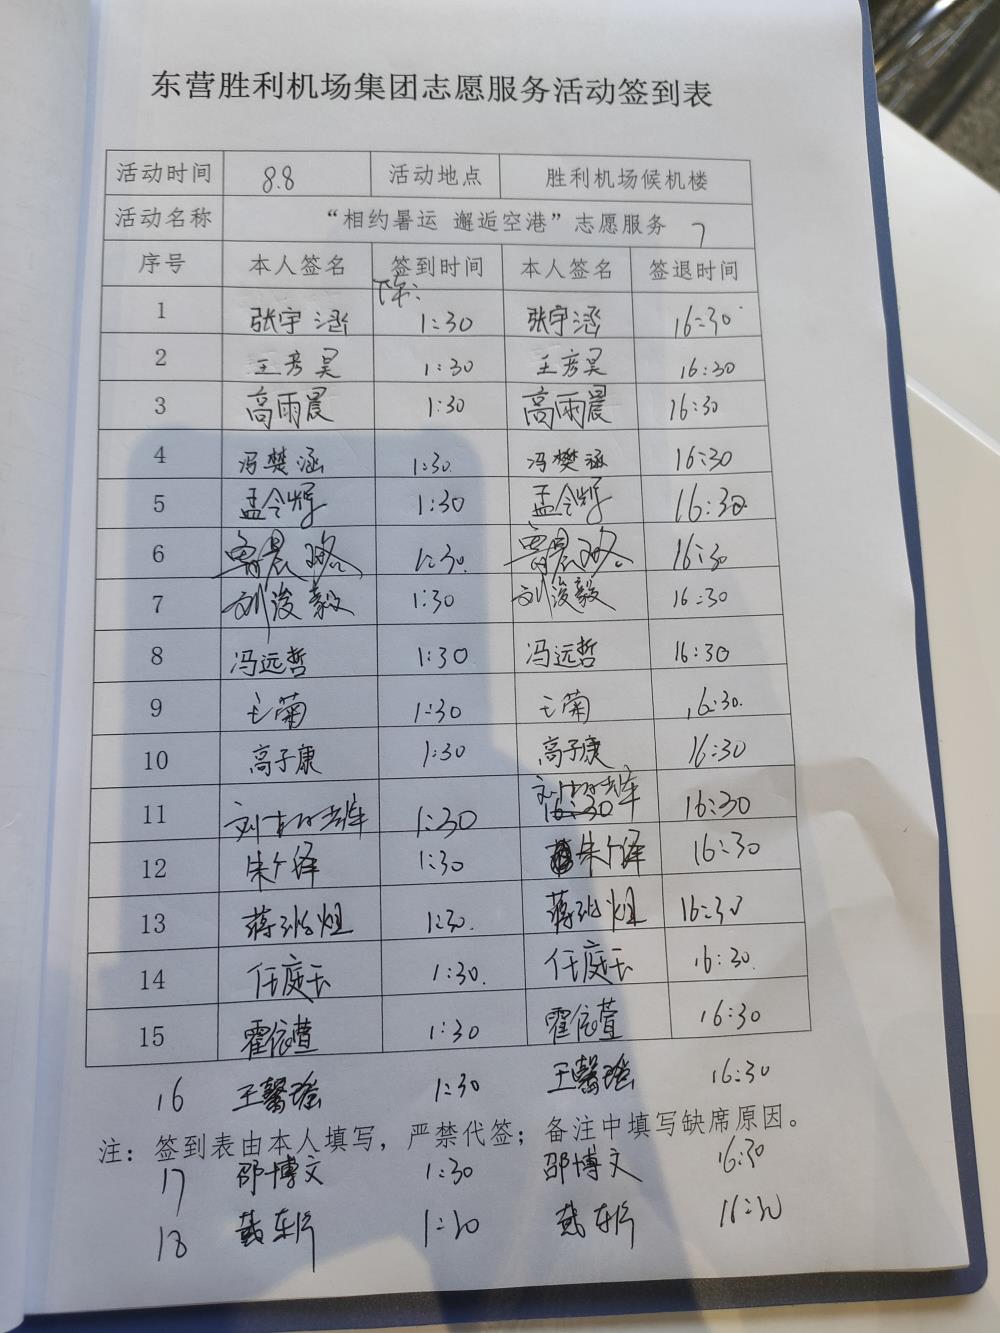 东营胜利机场集团志愿服务活动签到表
活动时间 8.8 活动地点 胜利机场候机楼
活动名称 “相约暑运 邂逅空港”志愿服务
序号 本人签名 签到时间 本人签名 签退时间
下午:
1 张宇涵 1:30 张宇涵 16:30
2 王彦昊 1:30 王彦昊 16:30
3 高雨晨 1:30 高雨晨 16:30
4 冯樊涵 1:30. 冯樊涵 16:30
5 孟令辉 1:30 孟令辉 16:30
6 1:30. 16:30
7 刘浚毅 1:30 刘浚毅 16:30
8 冯远哲 1:30 冯远哲 16:30
9 王菊 1:30 王菊 16:30.
10 高子康 1:30 高子康 16:30
11 刘 1:30 刘 16:30 16:30
12 朱 泽 1:30 朱 泽 16:30
13 蒋 1:30. 蒋 16:30
14 任庭玉 1:30. 任庭玉 16:30.
15 霍依萱 1:30 霍依萱 16:30
16 王馨瑶 1:30 王馨瑶 16:30
注：签到表由本人填写，严禁代签；备注中填写缺席原因。
17 邵博文 1:30 邵博文 16:30
18 戴 1:30 戴 16:30